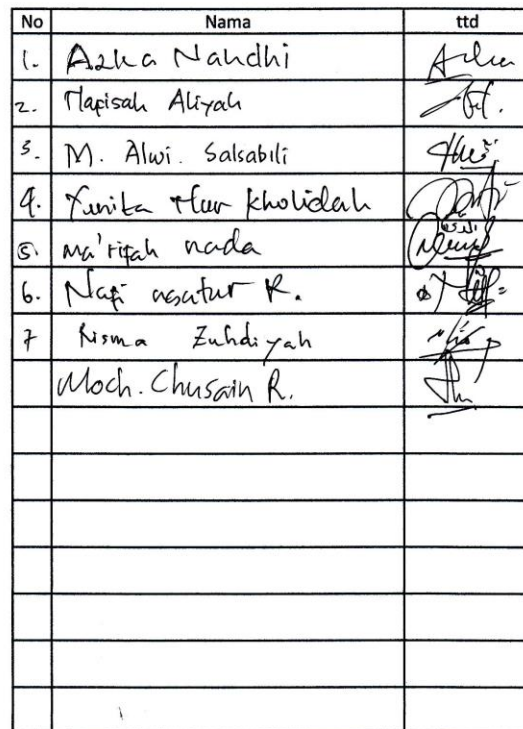 No Nama ttd
1. Azka Nahdhi
2. Hafisah Aliyah
3. M. Alwi. Salsabili
4. Yunita Nur Kholidah
5. Ma'rifah nada
6. Nafi asatur R.
7 Risma Zuhdiyah
Moch. Chusain R.